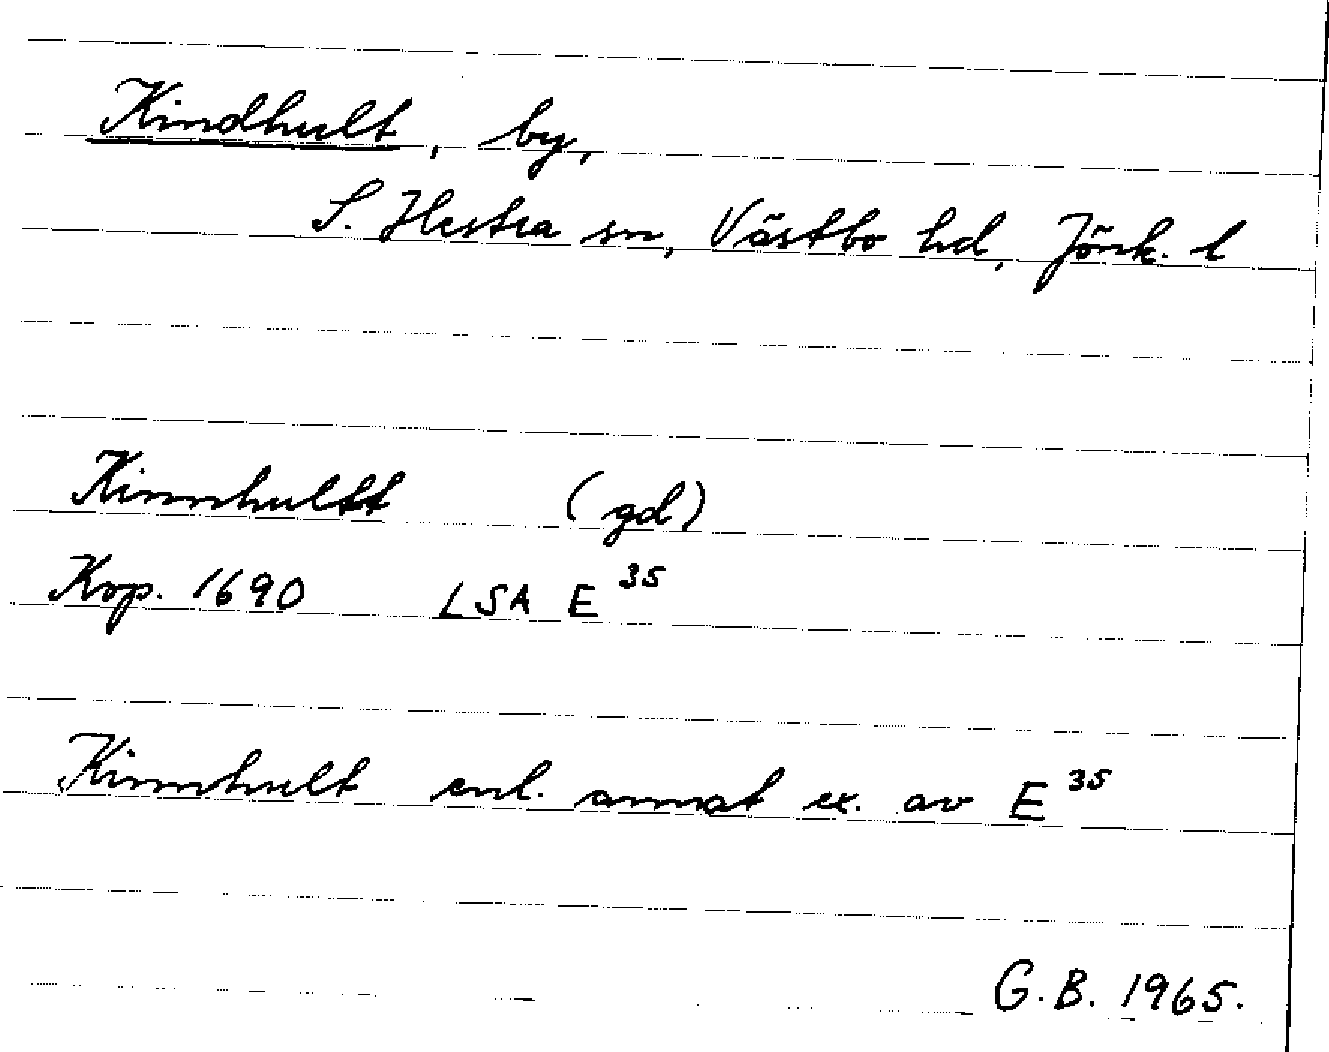 Kindhult, by,
S. Hestra sn, Västbo hd, Jönk. l
Kinnhultt (gd)
Kop. 1690 LSA E 35
Kinnhult enl. annat ex. av E 35
G.B. 1965.